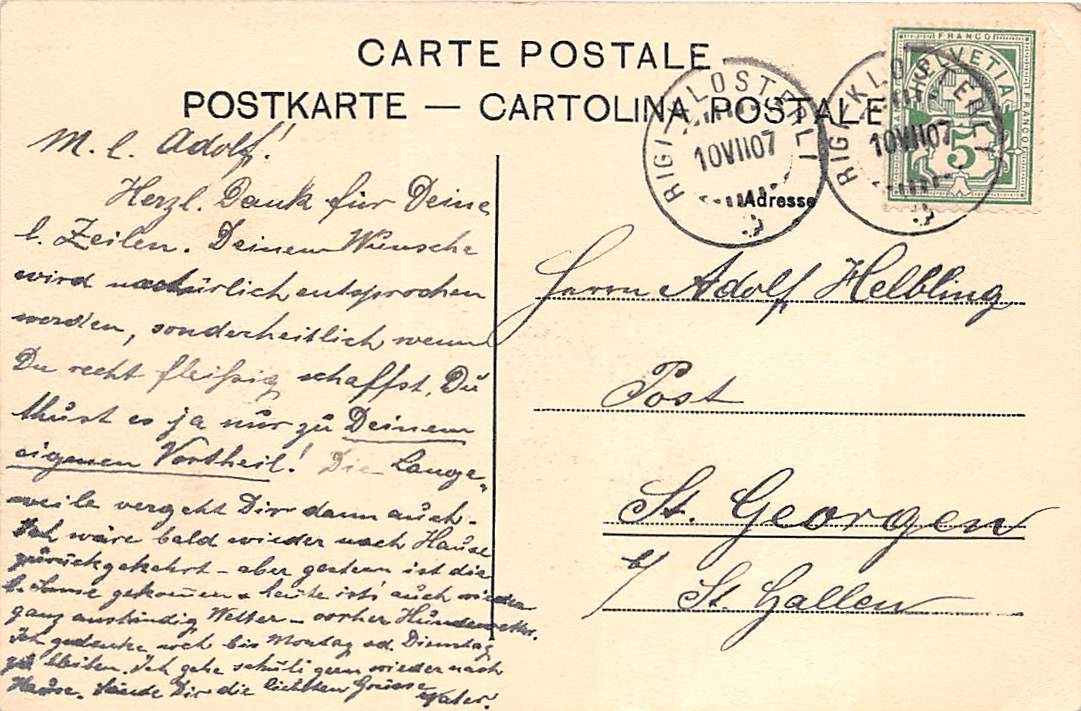 CARTE POSTALE
POSTKARTE — CARTOLINA POSTALE
RIGI-KLÖSTERLI
10 VII 07
RIGI-KLÖSTERLI
10 VII 07
FRANCO
HELVETIA
FRANCO
5
Adresse
M. l. Adolf!
Herzl. Dank für Deine
l. Zeilen. Deinem Wunsche
wird natürlich entsprochen
werden, sonderheitlich wenn
Du recht fleißig schaffst. Du
thust es ja nur zu Deinem
eigenen Vortheil! Die Lange-
weile vergeht Dir dann auch.
Ich wäre bald wieder nach Hause
zurückgekehrt – aber gestern ist die
l. Sonne gekommen & heute ist's auch wieder
ganz anständig Wetter – vorher Hundewetter.
Ich gedenke noch bis Montag od. Dienstag
zu bleiben. Ich gehe schuli gern wieder nach
Hause. Sende Dir die lichsten Grüsse
Vater.
Herrn Adolf Helbling
Post
St. Georgen
b/ St. Gallen